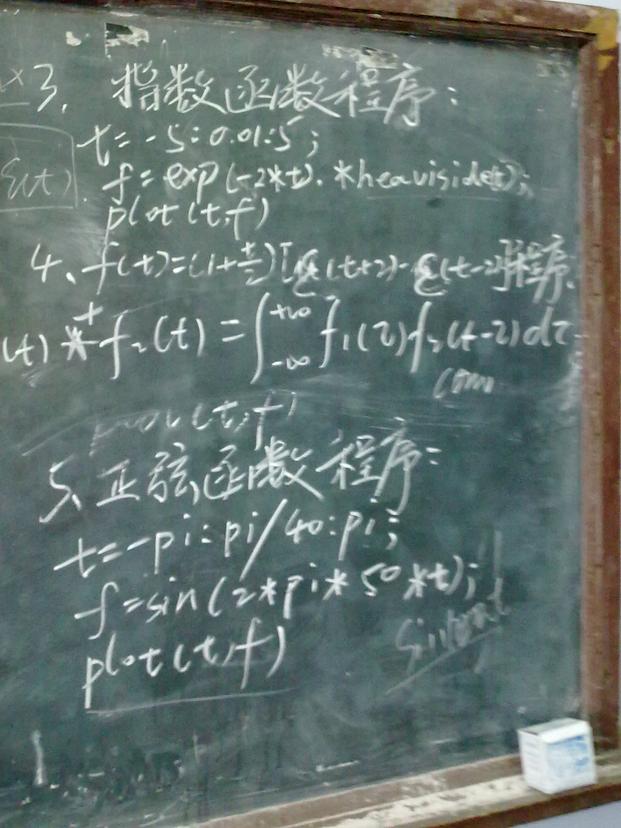 3. 指数函数程序:
t=-5:0.01:5;
f=exp(-2*t).*heaviside(t);
plot(t,f)
ε(t)
4、f(t)=(1+t/2)[ε(t+2)-ε(t-2)]程序.
(t)*f₂(t)=∫_{-∞}^{+∞}f₁(τ)f₂(t-τ)dτ
conv
plot(t,f)
5、正弦函数程序:
t=-pi:pi/40:pi;
f=sin(2*pi*50*t);
plot(t,f)